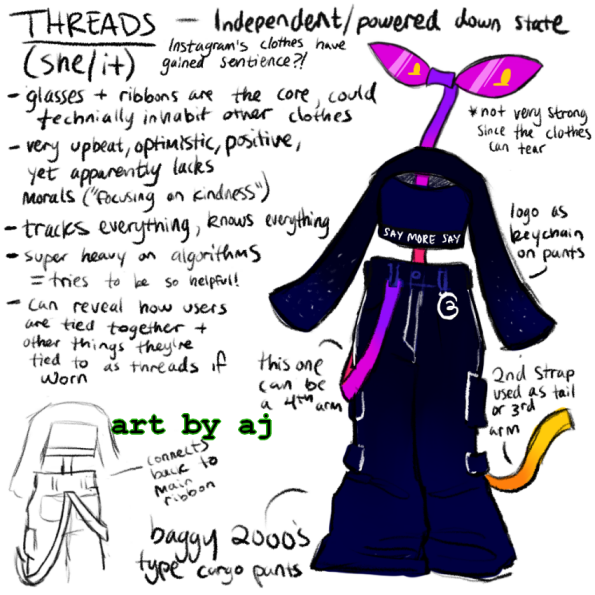 THREADS - Independent/powered down state
(she/it)
Instagram's clothes have
gained sentience?!
- glasses + ribbons are the core, could
technially inhabit other clothes
- very upbeat, optimistic, positive,
yet apparently lacks
morals ("focusing on kindness")
- tracks everything, knows everything
- super heavy on algorithms
= tries to be so helpful!
- can reveal how users
are tied together +
other things they're
tied to as threads if
worn
*not very strong
since the clothes
can tear
SAY MORE SAY
logo as
keychain
on pants
this one
can be
a 4th arm
2nd strap
used as tail
or 3rd
arm
art by aj
connects
back to
main
ribbon
baggy 2000's
type cargo pants